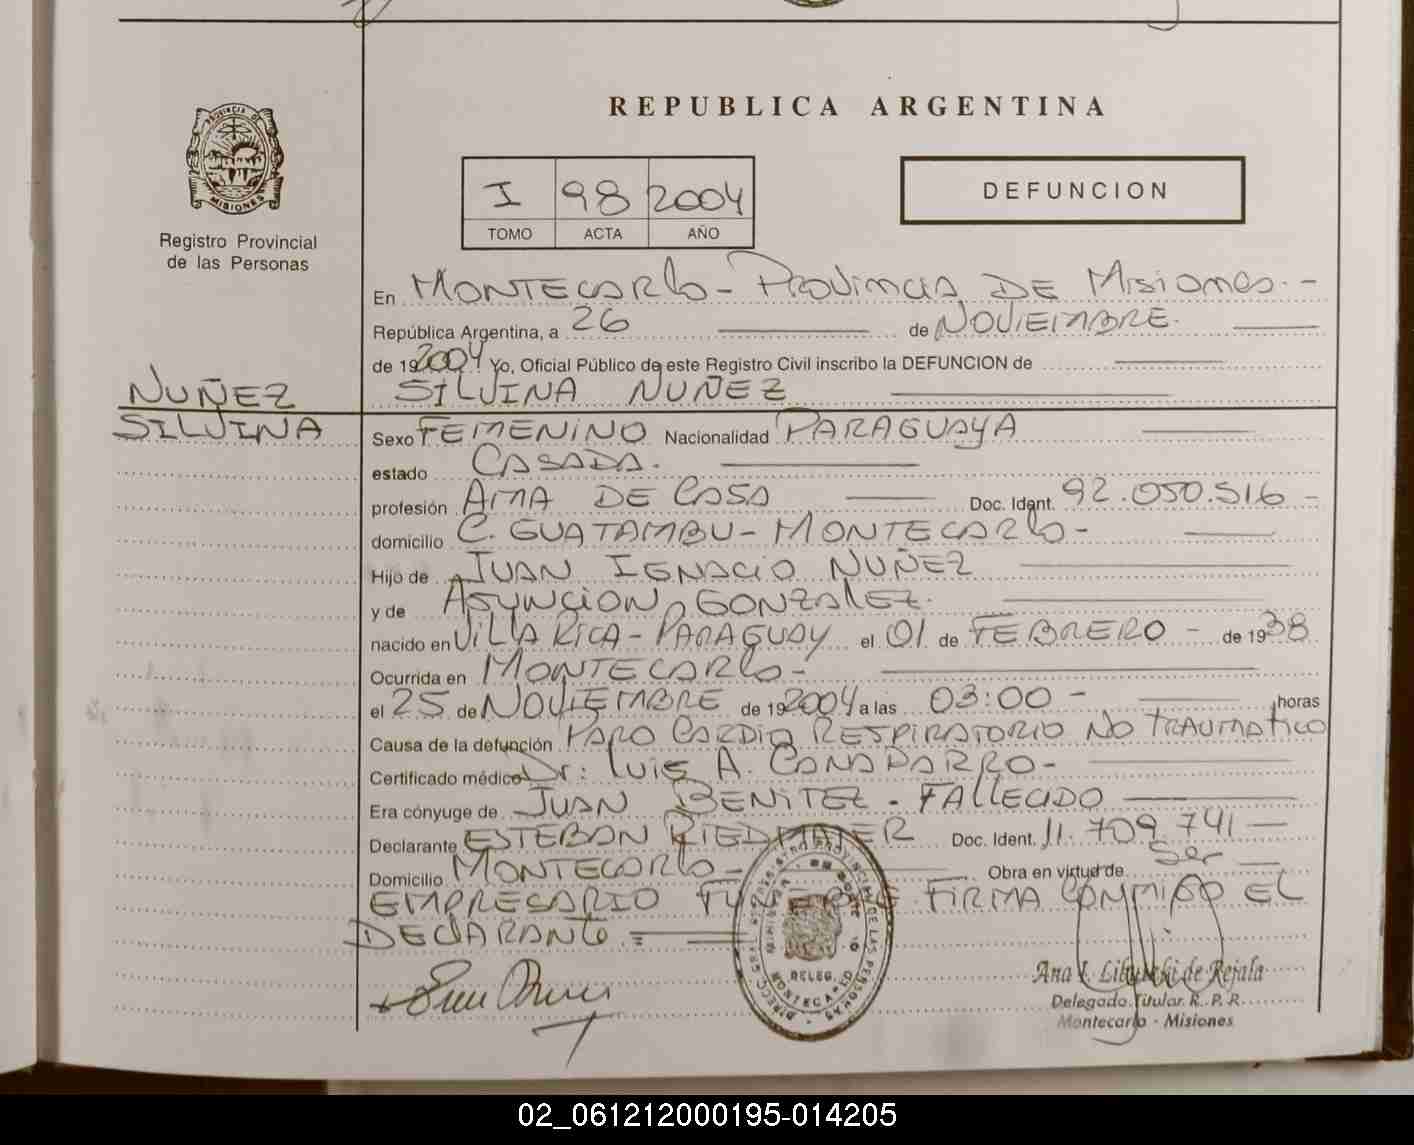 REPUBLICA ARGENTINA
PROVINCIA DE MISIONES
Registro Provincial
de las Personas
I 98 2004
TOMO ACTA AÑO
DEFUNCION
En MONTECARLO - PROVINCIA DE MISIONES. -
República Argentina, a 26 de NOVIEMBRE.
de 192004! Yo, Oficial Público de este Registro Civil inscribo la DEFUNCION de
NUÑEZ
SILVINA
SILVINA NUÑEZ
Sexo FEMENINO Nacionalidad PARAGUAYA
estado CASADA.
profesión AMA DE CASA Doc. Ident. 92.050.516 -
domicilio C. GUATAMBU - MONTECARLO -
Hijo de JUAN IGNACIO NUÑEZ
y de ASUNCION GONZALEZ.
nacido en VILLA RICA - PARAGUAY el 01 de FEBRERO - de 1938
Ocurrida en MONTECARLO -
el 25 de NOVIEMBRE de 192004 a las 03:00 - horas
Causa de la defunción PARO CARDIO RESPIRATORIO NO TRAUMATICO
Certificado médico Dr: LUIS A. CANAPARRO -
Era cónyuge de JUAN BENITEZ - FALLECIDO
Declarante ESTEBAN RIEDMAIER Doc. Ident. 11.709.741 -
Domicilio MONTECARLO - Obra en virtud de ser
EMPRESARIO FUNEBRE FIRMA CONMIGO EL
DECLARANTE.=
DELEG.
MONTECARLO
Ana I. de Rejala
Delegado Titular R. P. R.
Montecarlo - Misiones
02_061212000195-014205